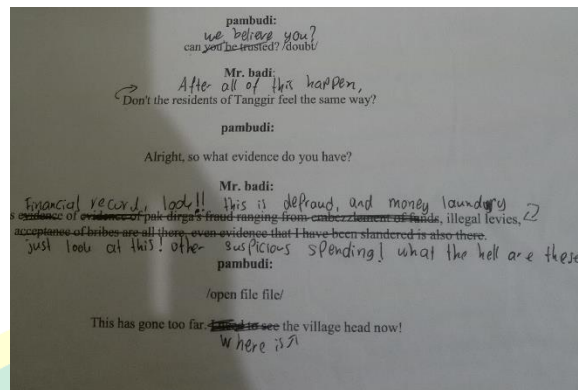 pambudi:
we believe you?
can you be trusted? /doubt/
Mr. badi:
After all of this happen,
Don't the residents of Tanggir feel the same way?
pambudi:
Alright, so what evidence do you have?
Mr. badi:
Financial record, look!! this is defraud, and money laundry
s evidence of evidence of pak dirga's fraud ranging from embezzlement of funds, illegal levies,
acceptance of bribes are all there, even evidence that I have been slandered is also there.
just look at this! other suspicious spending! what the hell are these
pambudi:
/open file file/
This has gone too far. I need to see the village head now!
where is